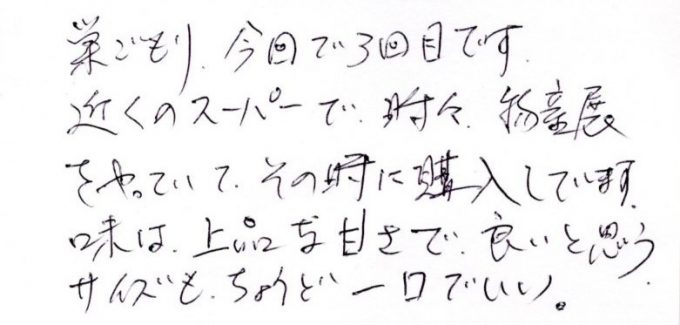 巣ごもり、今回で3回目です。
近くのスーパーで、時々、物産展
をやっていて、その時に購入しています。
味は、上品な甘さで、良いと思う。
サイズも、ちょうど一口でいい。